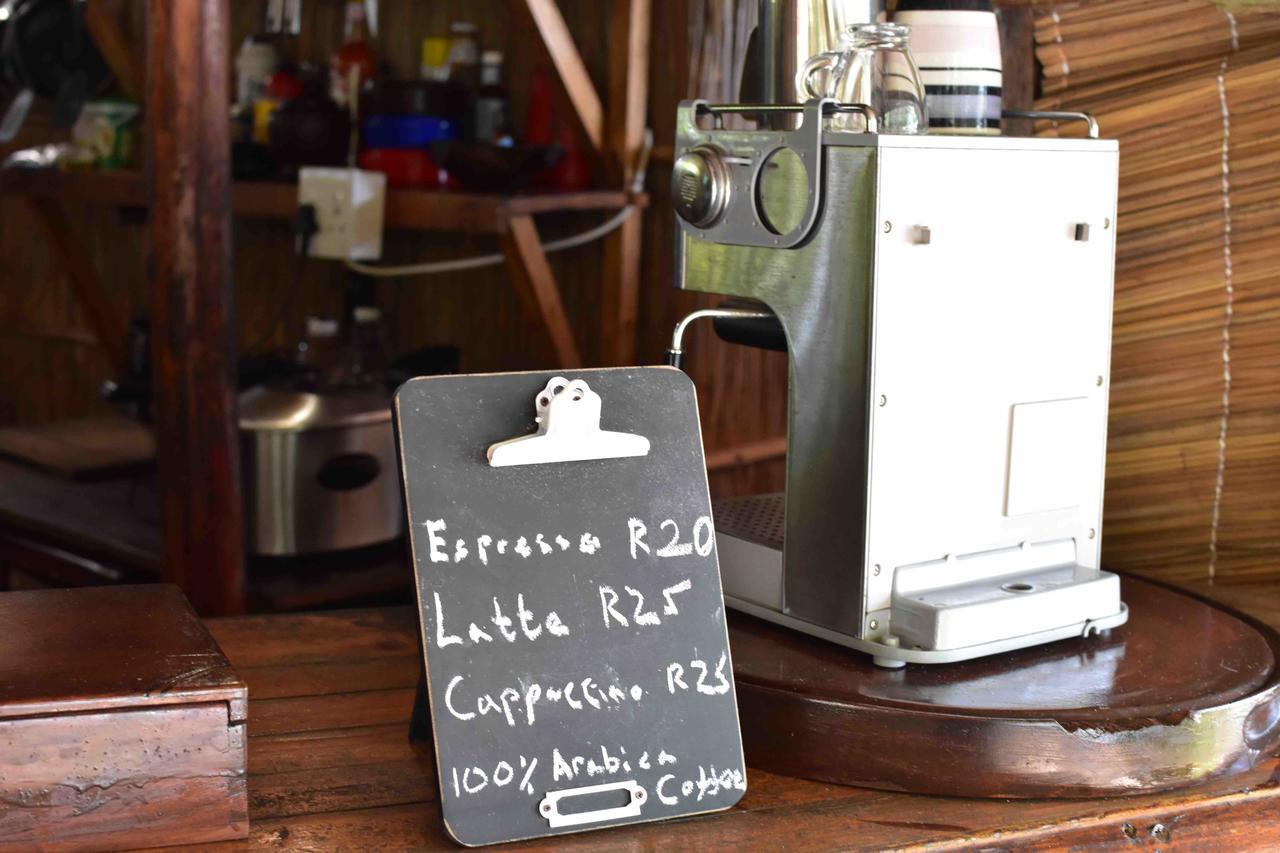 Espresso R20
Latte R25
Cappuccino R25
100% Arabica
Coffee